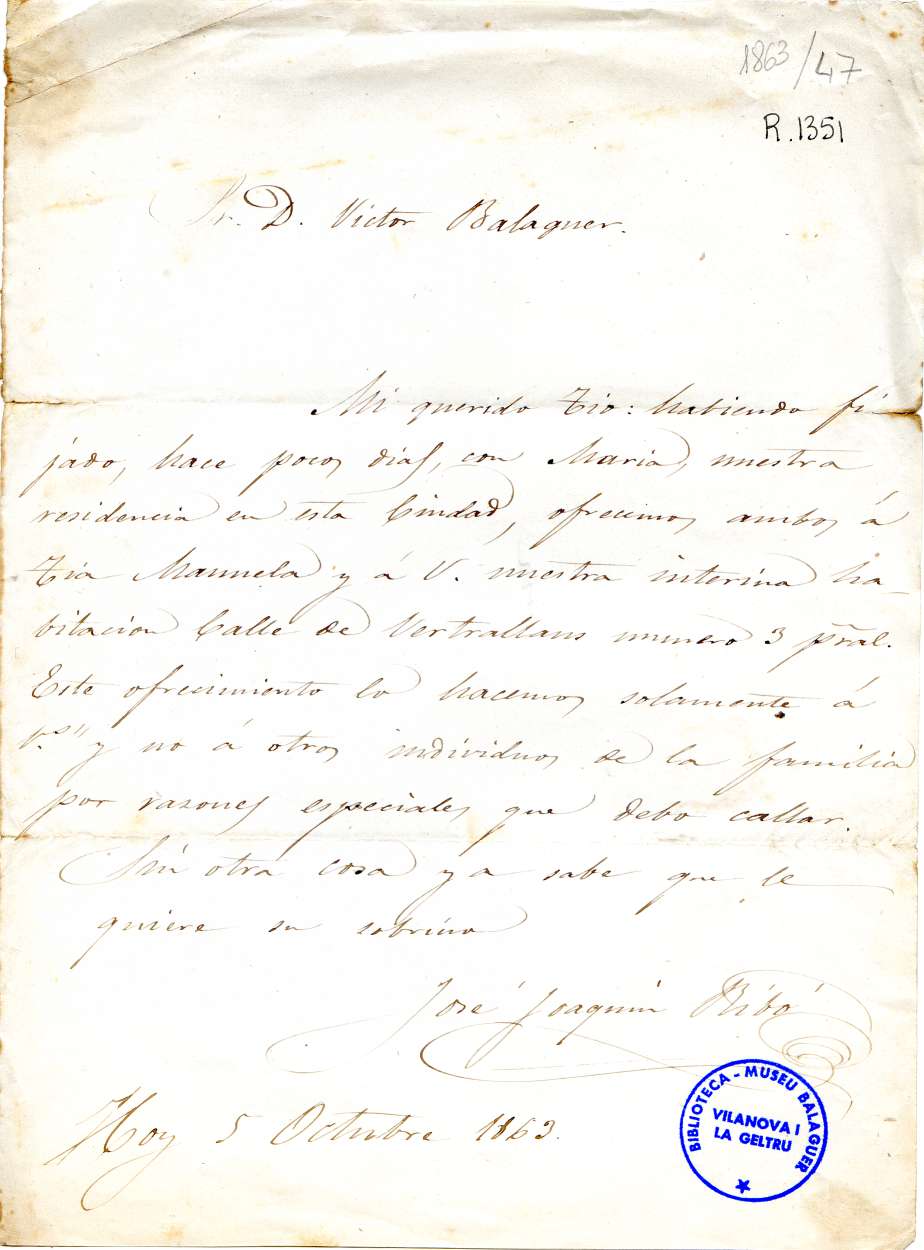 1863/47
R.1351
Sr. D. Victor Balaguer.
Mi querido Tio: habiendo fi
jado, hace pocos dias, con Maria, nuestra
residencia en esta Ciudad, ofrecemos ambos á
Tia Manuela y á V. nuestra interina ha-
bitacion Calle de Vertrallans numero 3 pñal.
Este ofrecimiento lo hacemos solamente á
V.es y no á otros individuos de la familia
por razones especiales que debo callar.
Sin otra cosa ya sabe que le
quiere su sobrino
José Joaquin Ribó
Hoy 5 Octubre 1863.
BIBLIOTECA - MUSEU BALAGUER
VILANOVA I
LA GELTRU